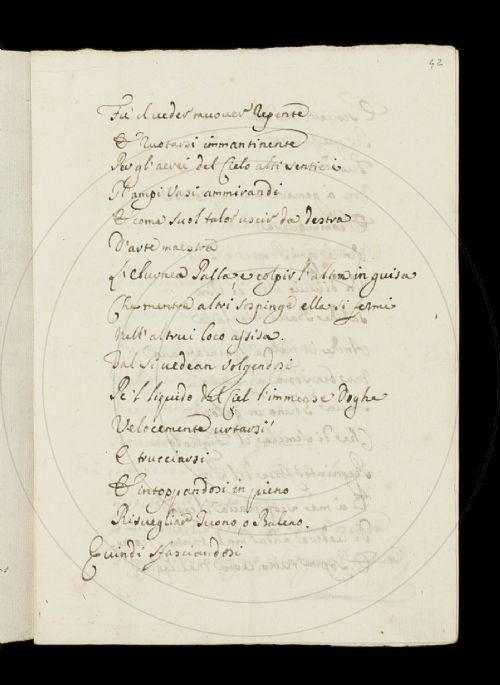 42
Fù il veder muover repente
Et ruotarsi immantinente
Per gl'aerei del Cielo alti sentieri
Gl'ampi Vasi ammirandi
E come suol talor uscir da destra
D'arte maestra
L'eburnea Palla, e colpir l'altra in guisa
Che mentre altri sospinge ella si fermi
Nell'altrui loco assisa.
Tal si vedean volgendosi
Pe'l liquido del Ciel l'immense Doghe
Velocemente urtarsi
E trucciarsi
Et intoppandosi in pieno
Risvegliar Tuono, o Baleno.
Quindi sfasciandosi